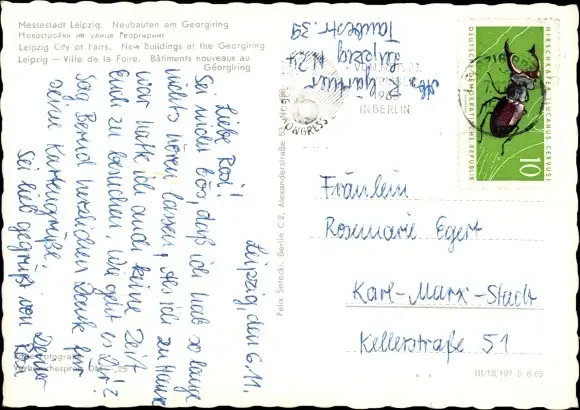 Messestadt Leipzig. Neubauten am Georgiring
Новостройки на улице Георгиринг
Leipzig City of Fairs, New Buildings of the Georgiring
Leipzig — Ville de la Foire. Bâtiments nouveaux au
Géorgiring
Leipzig, den 6.11.
Liebe Rosi!
Sei nicht bös, daß ich hab so lange
nichts hören lassen, Als ich zu Hause
war hatte ich auch keine Zeit
Euch zu besuchen. Wie geht es Dir?
Sag Bernd herzlichen Dank für
seine Kartengrüße.
Sei lieb gegrüßt von
Deiner
Abs.
Leipzig N 24
Taubestr. 39
KONGRESS
IN BERLIN
HIRSCHKÄFER (LUCANUS CERVUS)
DEUTSCHE DEMOKRATISCHE REPUBLIK
10
Fräulein
Rosemarie Egert
Karl-Marx-Stadt
Kellerstraße 51
Felix Setecki, Berlin C 2, Alexanderstraße
Verbraucherpreis DM
III/18/197